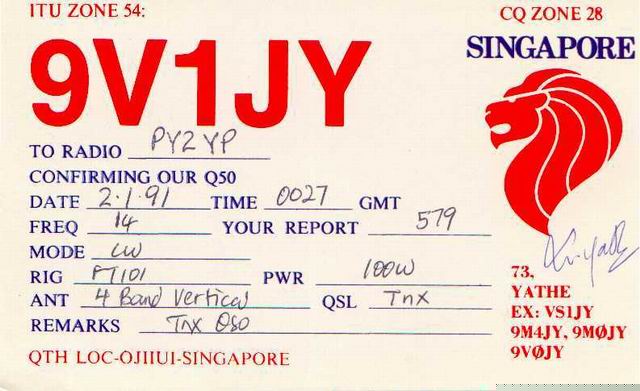 ITU ZONE 54:
CQ ZONE 28
SINGAPORE
9V1JY
TO RADIO PY2YP
CONFIRMING OUR Q50
DATE 2.1.91 TIME 0027 GMT
FREQ 14 YOUR REPORT 579
MODE CW
RIG FT101 PWR 100W
ANT 4 Band Vertical QSL Tnx
REMARKS Tnx QSO
QTH LOC-OJIIUI-SINGAPORE
73,
YATHE
EX: VS1JY
9M4JY, 9MØJY
9VØJY